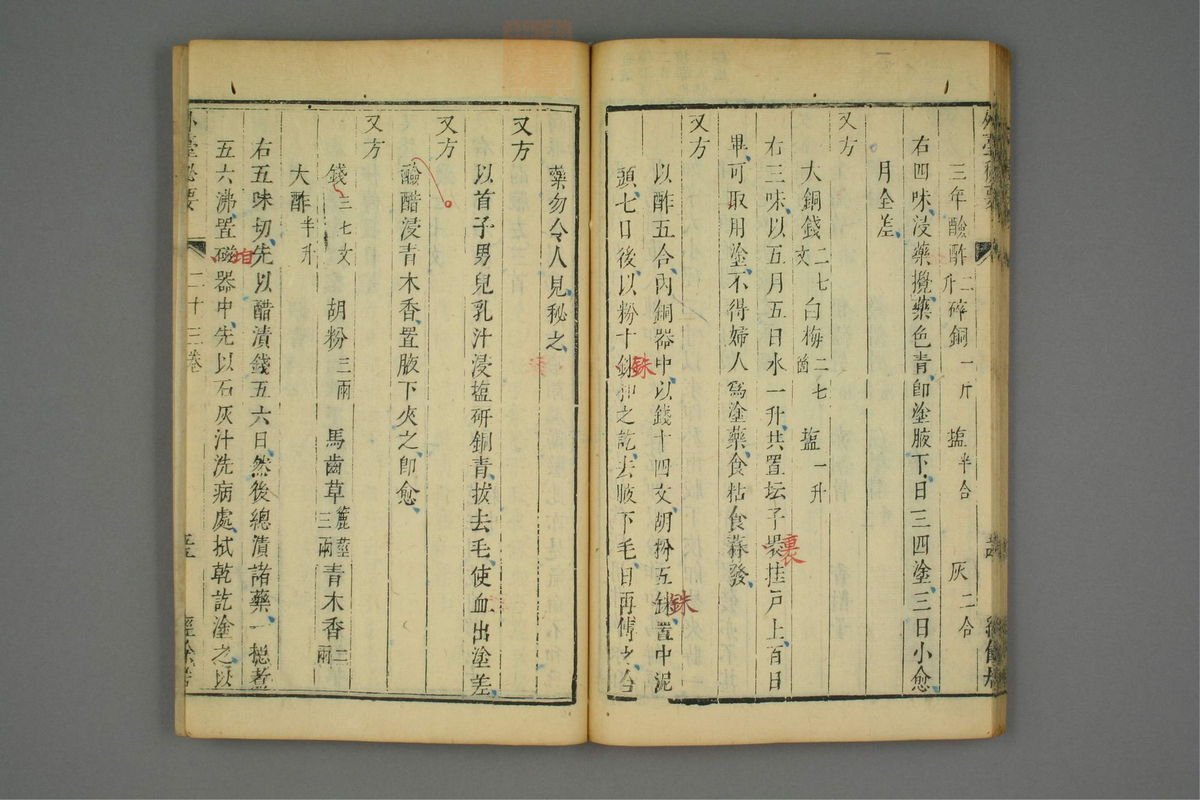 三年醶酢二升 碎銅一斤 塩半合 灰二合
右四味浸藥攪藥色青卽塗腋下日三四塗三日小愈
月全差
又方
大銅錢二七文 白梅二七箇 塩一升
右三味以五月五日水一升共置坛子裏挂戸上百日
畢可取用塗不得婦人爲塗藥食粘食蒜發
又方
以酢五合內銅器中以錢十四文胡粉五銖置中泥
頭七日後以粉十銖和之訖去腋下毛日再傅之合
藥勿令人見秘之
又方
以首子男兒乳汁浸塩研銅青拔去毛使血出塗差
又方
醶醋浸青木香置腋下夾之卽愈
又方
錢三七文 胡粉三兩 馬齒草麄莖三兩 青木香二兩
大酢半升
右五味切先以醋漬錢五六日然後總漬諸藥一
五六沸置磁器中先以石灰汁洗病處拭乾訖塗之以
外臺秘要
二十三卷
經餘居
裏
銖
銖